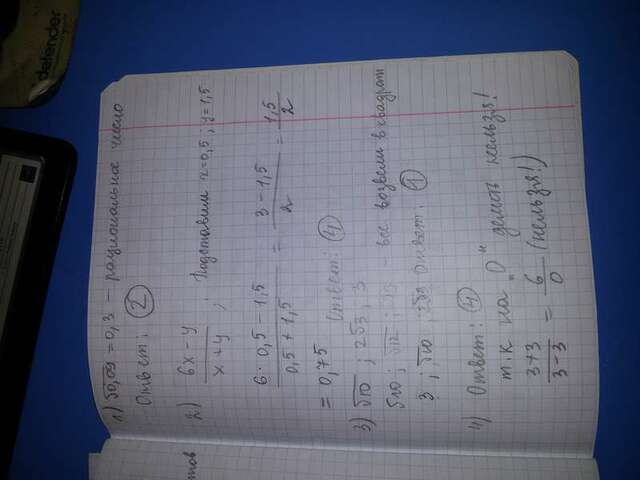 1) √0,09 = 0,3 – рациональное число
Ответ: ②
2) 6x – y / x + y ; Подставим x = 0,5 ; y = 1,5
6 · 0,5 – 1,5 / 0,5 + 1,5 = 3 – 1,5 / 2 = 1,5 / 2
= 0,75 Ответ: ④
3) √10 ; 2√3 ; 3
√10 ; √12 ; √9 – все возвели в квадрат
3 ; √10 ; 2√3 Ответ: ①
4) Ответ: ④
т.к на "0" делить нельзя!
3+3 / 3–3 = 6 / 0 (нельзя!)
defender
тов